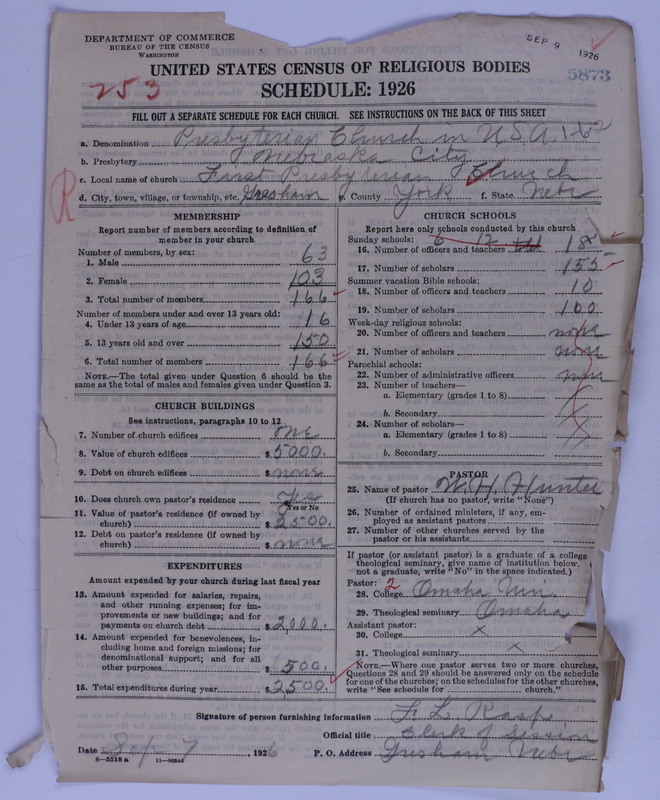 DEPARTMENT OF COMMERCE
BUREAU OF THE CENSUS
WASHINGTON
SEP 9 1926
5873
253
UNITED STATES CENSUS OF RELIGIOUS BODIES
SCHEDULE: 1926
FILL OUT A SEPARATE SCHEDULE FOR EACH CHURCH. SEE INSTRUCTIONS ON THE BACK OF THIS SHEET
a. Denomination Presbyterian Church in U.S.A. 1-62
b. Presbytery Nebraska City
c. Local name of church First Presbyterian Church
R
d. City, town, village, or township, etc. Gresham e. County York f. State Nebr
MEMBERSHIP
Report number of members according to definition of
member in your church
Number of members, by sex:
1. Male 63
2. Female 103
3. Total number of members 166
Number of members under and over 13 years old:
4. Under 13 years of age 16
5. 13 years old and over 150
6. Total number of members 166
NOTE.—The total given under Question 6 should be the
same as the total of males and females given under Question 3.
CHURCH BUILDINGS
See instructions, paragraphs 10 to 12
7. Number of church edifices one
8. Value of church edifices $5000.
9. Debt on church edifices $ none
10. Does church own pastor's residence Yes
Yes or No
11. Value of pastor's residence (if owned by
church) $2500.
12. Debt on pastor's residence (if owned by
church) $ none
EXPENDITURES
Amount expended by your church during last fiscal year
13. Amount expended for salaries, repairs,
and other running expenses; for im-
provements or new buildings; and for
payments on church debt $2,000.
14. Amount expended for benevolences, in-
cluding home and foreign missions; for
denominational support; and for all
other purposes $500.
15. Total expenditures during year $2500.
CHURCH SCHOOLS
Report here only schools conducted by this church
Sunday schools: 6 12
16. Number of officers and teachers 18
17. Number of scholars 155
Summer vacation Bible schools:
18. Number of officers and teachers 10
19. Number of scholars 100
Week-day religious schools:
20. Number of officers and teachers none
21. Number of scholars none
Parochial schools:
22. Number of administrative officers none
23. Number of teachers—
a. Elementary (grades 1 to 8)
b. Secondary
24. Number of scholars—
a. Elementary (grades 1 to 8)
b. Secondary
PASTOR
25. Name of pastor W. H. Hunter
(If church has no pastor, write "None")
26. Number of ordained ministers, if any, em-
ployed as assistant pastors
27. Number of other churches served by the
pastor or his assistants
If pastor (or assistant pastor) is a graduate of a college
theological seminary, give name of institution below.
not a graduate, write "No" in the space indicated.)
Pastor: 2
28. College Omaha Uni
29. Theological seminary Omaha
Assistant pastor:
30. College x
31. Theological seminary x
NOTE.—Where one pastor serves two or more churches,
Questions 28 and 29 should be answered only on the schedule
for one of the churches; on the schedules for the other churches,
write "See schedule for church."
Signature of person furnishing information F. L. Rasp
Official title Clerk of Session
Date Sep 7, 1926 P. O. Address Gresham Nebr
8—5518 a